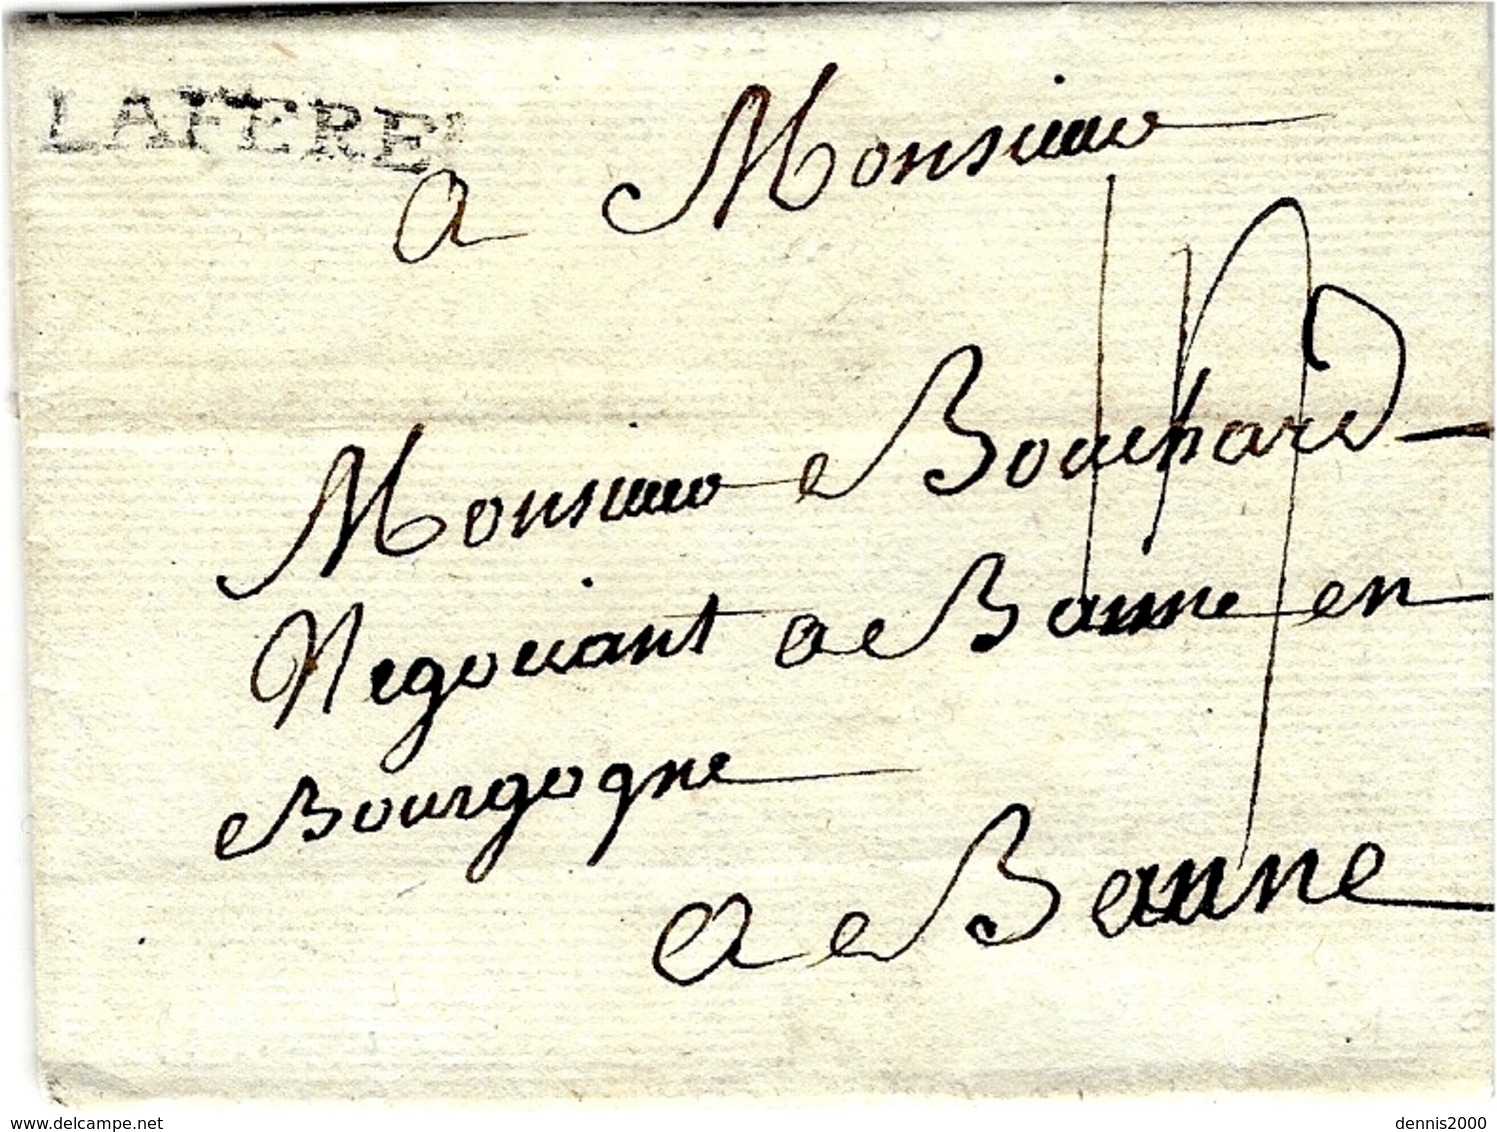 LAFERE
a Monsieur
Monsieur Bouchard
Negociant a Banne en
Bourgogne
a Banne
© www.delcampe.net
dennis2000